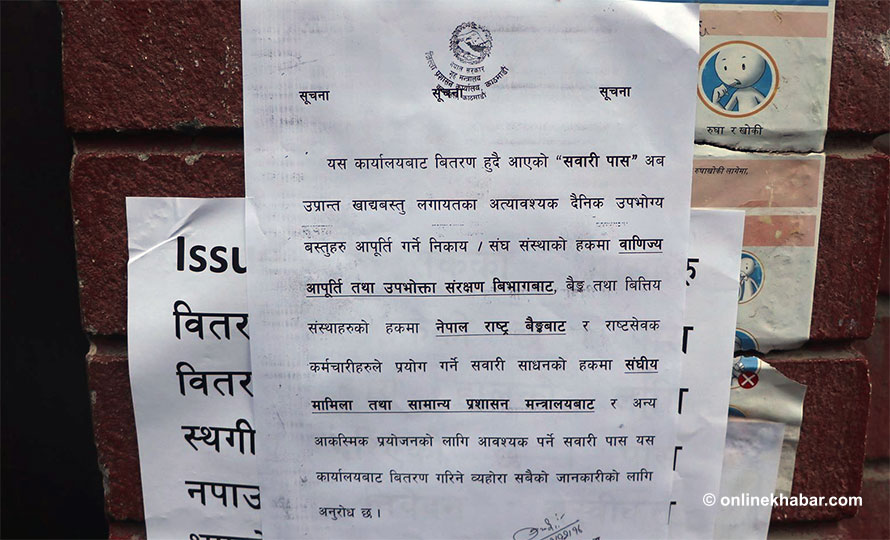 नेपाल सरकार
गृह मन्त्रालय
जिल्ला प्रशासन कार्यालय, काठमाडौं
सूचना सूचना सूचना
यस कार्यालयबाट बितरण हुदै आएको “सवारी पास” अब
उप्रान्त खाद्यबस्तु लगायतका अत्यावश्यक दैनिक उपभोग्य
बस्तुहरु आपूर्ति गर्ने निकाय / संघ संस्थाको हकमा वाणिज्य
आपूर्ति तथा उपभोक्ता संरक्षण बिभागबाट, बैङ्क तथा बित्तिय
संस्थाहरुको हकमा नेपाल राष्ट्र बैङ्कबाट र राष्टसेवक
कर्मचारीहरुले प्रयोग गर्ने सवारी साधनको हकमा संघीय
मामिला तथा सामान्य प्रशासन मन्त्रालयबाट र अन्य
आकस्मिक प्रयोजनको लागि आवश्यक पर्ने सवारी पास यस
कार्यालयबाट बितरण गरिने व्यहोरा सबैको जानकारीको लागि
अनुरोध छ ।
Issu
वितर
वितर
स्थगी
नपाउ
रुघा र खोकी
रुघाखोकी लागेमा,
© onlinekhabar.com